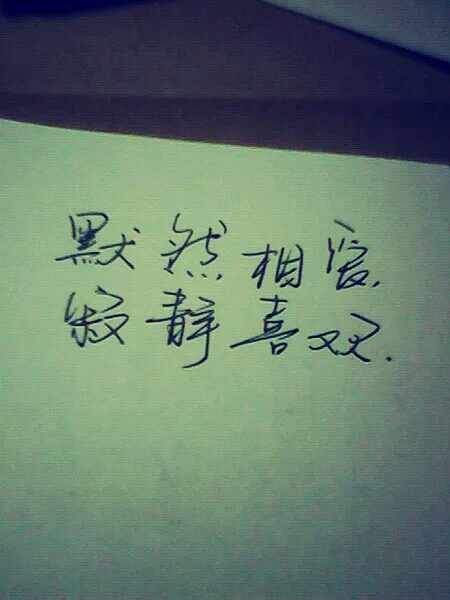 默然相爱.
寂静喜欢.